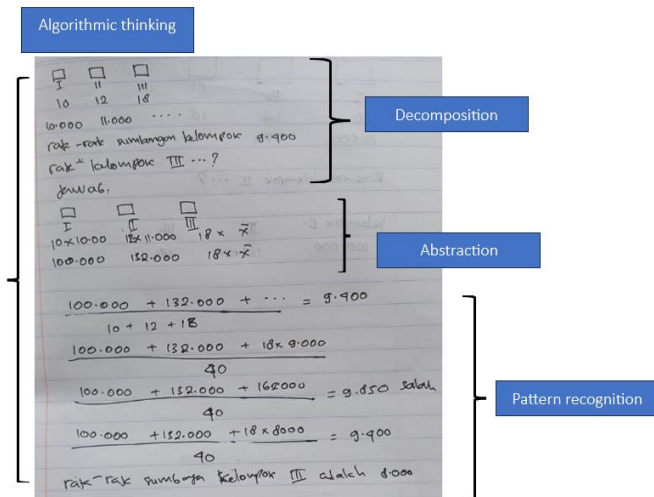 Algorithmic thinking
I II III
10 12 18
10.000 11.000 ....
rak-rak sumbangan kelompok 9.400
rak" kelompok III ...?
Jawab.
I II III
10 x 10.00 12 x 11.000 18 x x̄
100.000 132.000 18 x x̄
100.000 + 132.000 + ... = 9.400
10 + 12 + 18
100.000 + 132.000 + 18 x 9.000
40
100.000 + 132.000 + 162000 = 9.850 salah
40
100.000 + 132.000 + 18 x 8000 = 9.400
40
rak-rak sumbangan kelompok III adalah 8.000
Decomposition
Abstraction
Pattern recognition